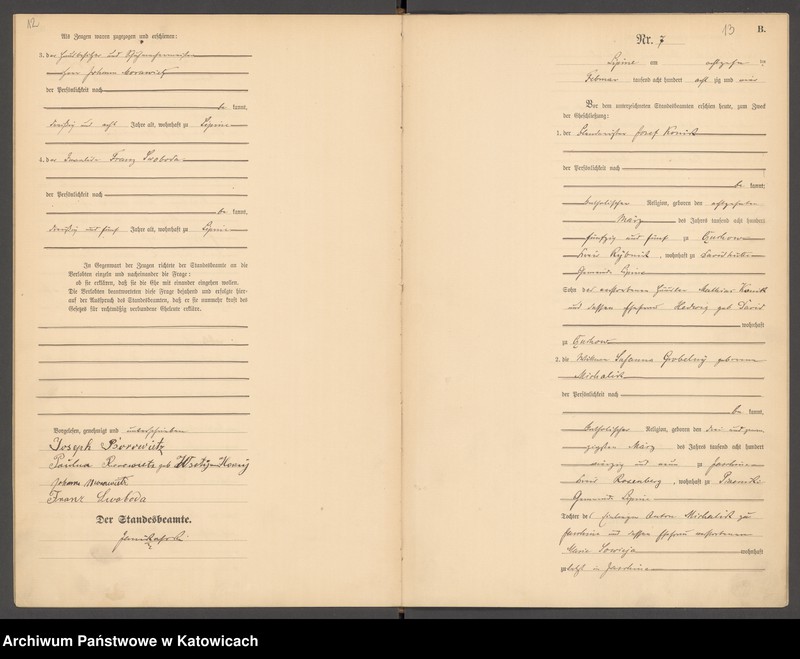 12
Als Zeugen waren zugezogen und erschienen:
3. der
Johann Morawietz
der Persönlichkeit nach
be kannt,
dreißig und acht Jahre alt, wohnhaft zu Lipine
4. der Franz Swoboda
der Persönlichkeit nach
be kannt,
dreißig und fünf Jahre alt, wohnhaft zu Lipine
In Gegenwart der Zeugen richtete der Standesbeamte an die
Verlobten einzeln und nacheinander die Frage:
ob sie erklären, daß sie die Ehe mit einander eingehen wollen.
Die Verlobten beantworteten diese Frage bejahend und erfolgte hier-
auf der Ausspruch des Standesbeamten, daß er sie nunmehr kraft des
Gesetzes für rechtmäßig verbundene Eheleute erkläre.
Vorgelesen, genehmigt und unterschrieben
Joseph
Paulina geb
Johann Morawietz
Franz Swoboda
Der Standesbeamte.
13
B.
Nr. 7
Lipine am achtzehnten
Februar tausend acht hundert acht zig und
Vor dem unterzeichneten Standesbeamten erschien heute, zum Zweck
der Eheschließung:
1. der Josef Konik
der Persönlichkeit nach
be kannt,
katholischer Religion, geboren den achtzehnten
März des Jahres tausend acht hundert
fünfzig und fünf zu
Kreis Rybnik, wohnhaft zu
Gemeinde Lipine
Sohn des verstorbenen Häusler Mathias Konik
und dessen Ehefrau Hedwig geb David
wohnhaft
zu
2. die Wittwe Susanna geborene
Michalik
der Persönlichkeit nach
be kannt,
katholischer Religion, geboren den drei und zwan
zigsten März des Jahres tausend acht hundert
vierzig und neun zu Jaschine
Kreis Rosenberg, wohnhaft zu Piasniki
Gemeinde Lipine
Tochter des Anton Michalik zu
Jaschine und dessen Ehefrau verstorbenen
Marie wohnhaft
zuletzt in Jaschine
Archiwum Państwowe w Katowicach